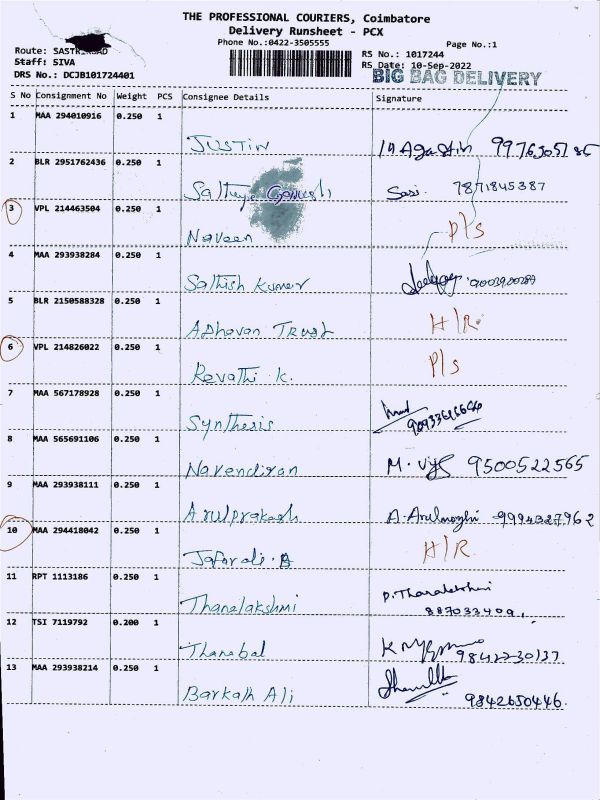 THE PROFESSIONAL COURIERS, Coimbatore
Delivery Runsheet - PCX
Phone No.:0422-3505555
Page No.:1
Route:
Staff: SIVA
RS No.: 1017244
RS Date: 10-Sep-2022
DRS No.: DCJB101724401
BIG BAG DELIVERY
S No Consignment No Weight PCS Consignee Details Signature
1 MAA 294010916 0.250 1
JUSTIN
2 BLR 2951762436 0.250 1
Sasi. 7871845387
3 VPL 214463504 0.250 1
Naveen P/s
4 MAA 293938284 0.250 1
Sathish Kumar
5 BLR 2150588328 0.250 1
Adhavan Trust H/R
6 VPL 214826022 0.250 1
Revathi K. P/s
7 MAA 567178928 0.250 1
Synthesis
8 MAA 565691106 0.250 1
Navendiran 9500522565
9 MAA 293938111 0.250 1
Arulprakash A. Arulmozhi 9994327962
10 MAA 294418042 0.250 1
Jafarali. A H/R.
11 RPT 1113186 0.250 1
Thanalakshmi P. Thanalakshmi
12 TSI 7119792 0.200 1
Thanabal
13 MAA 293938214 0.250 1
Barkath Ali 9842650446.